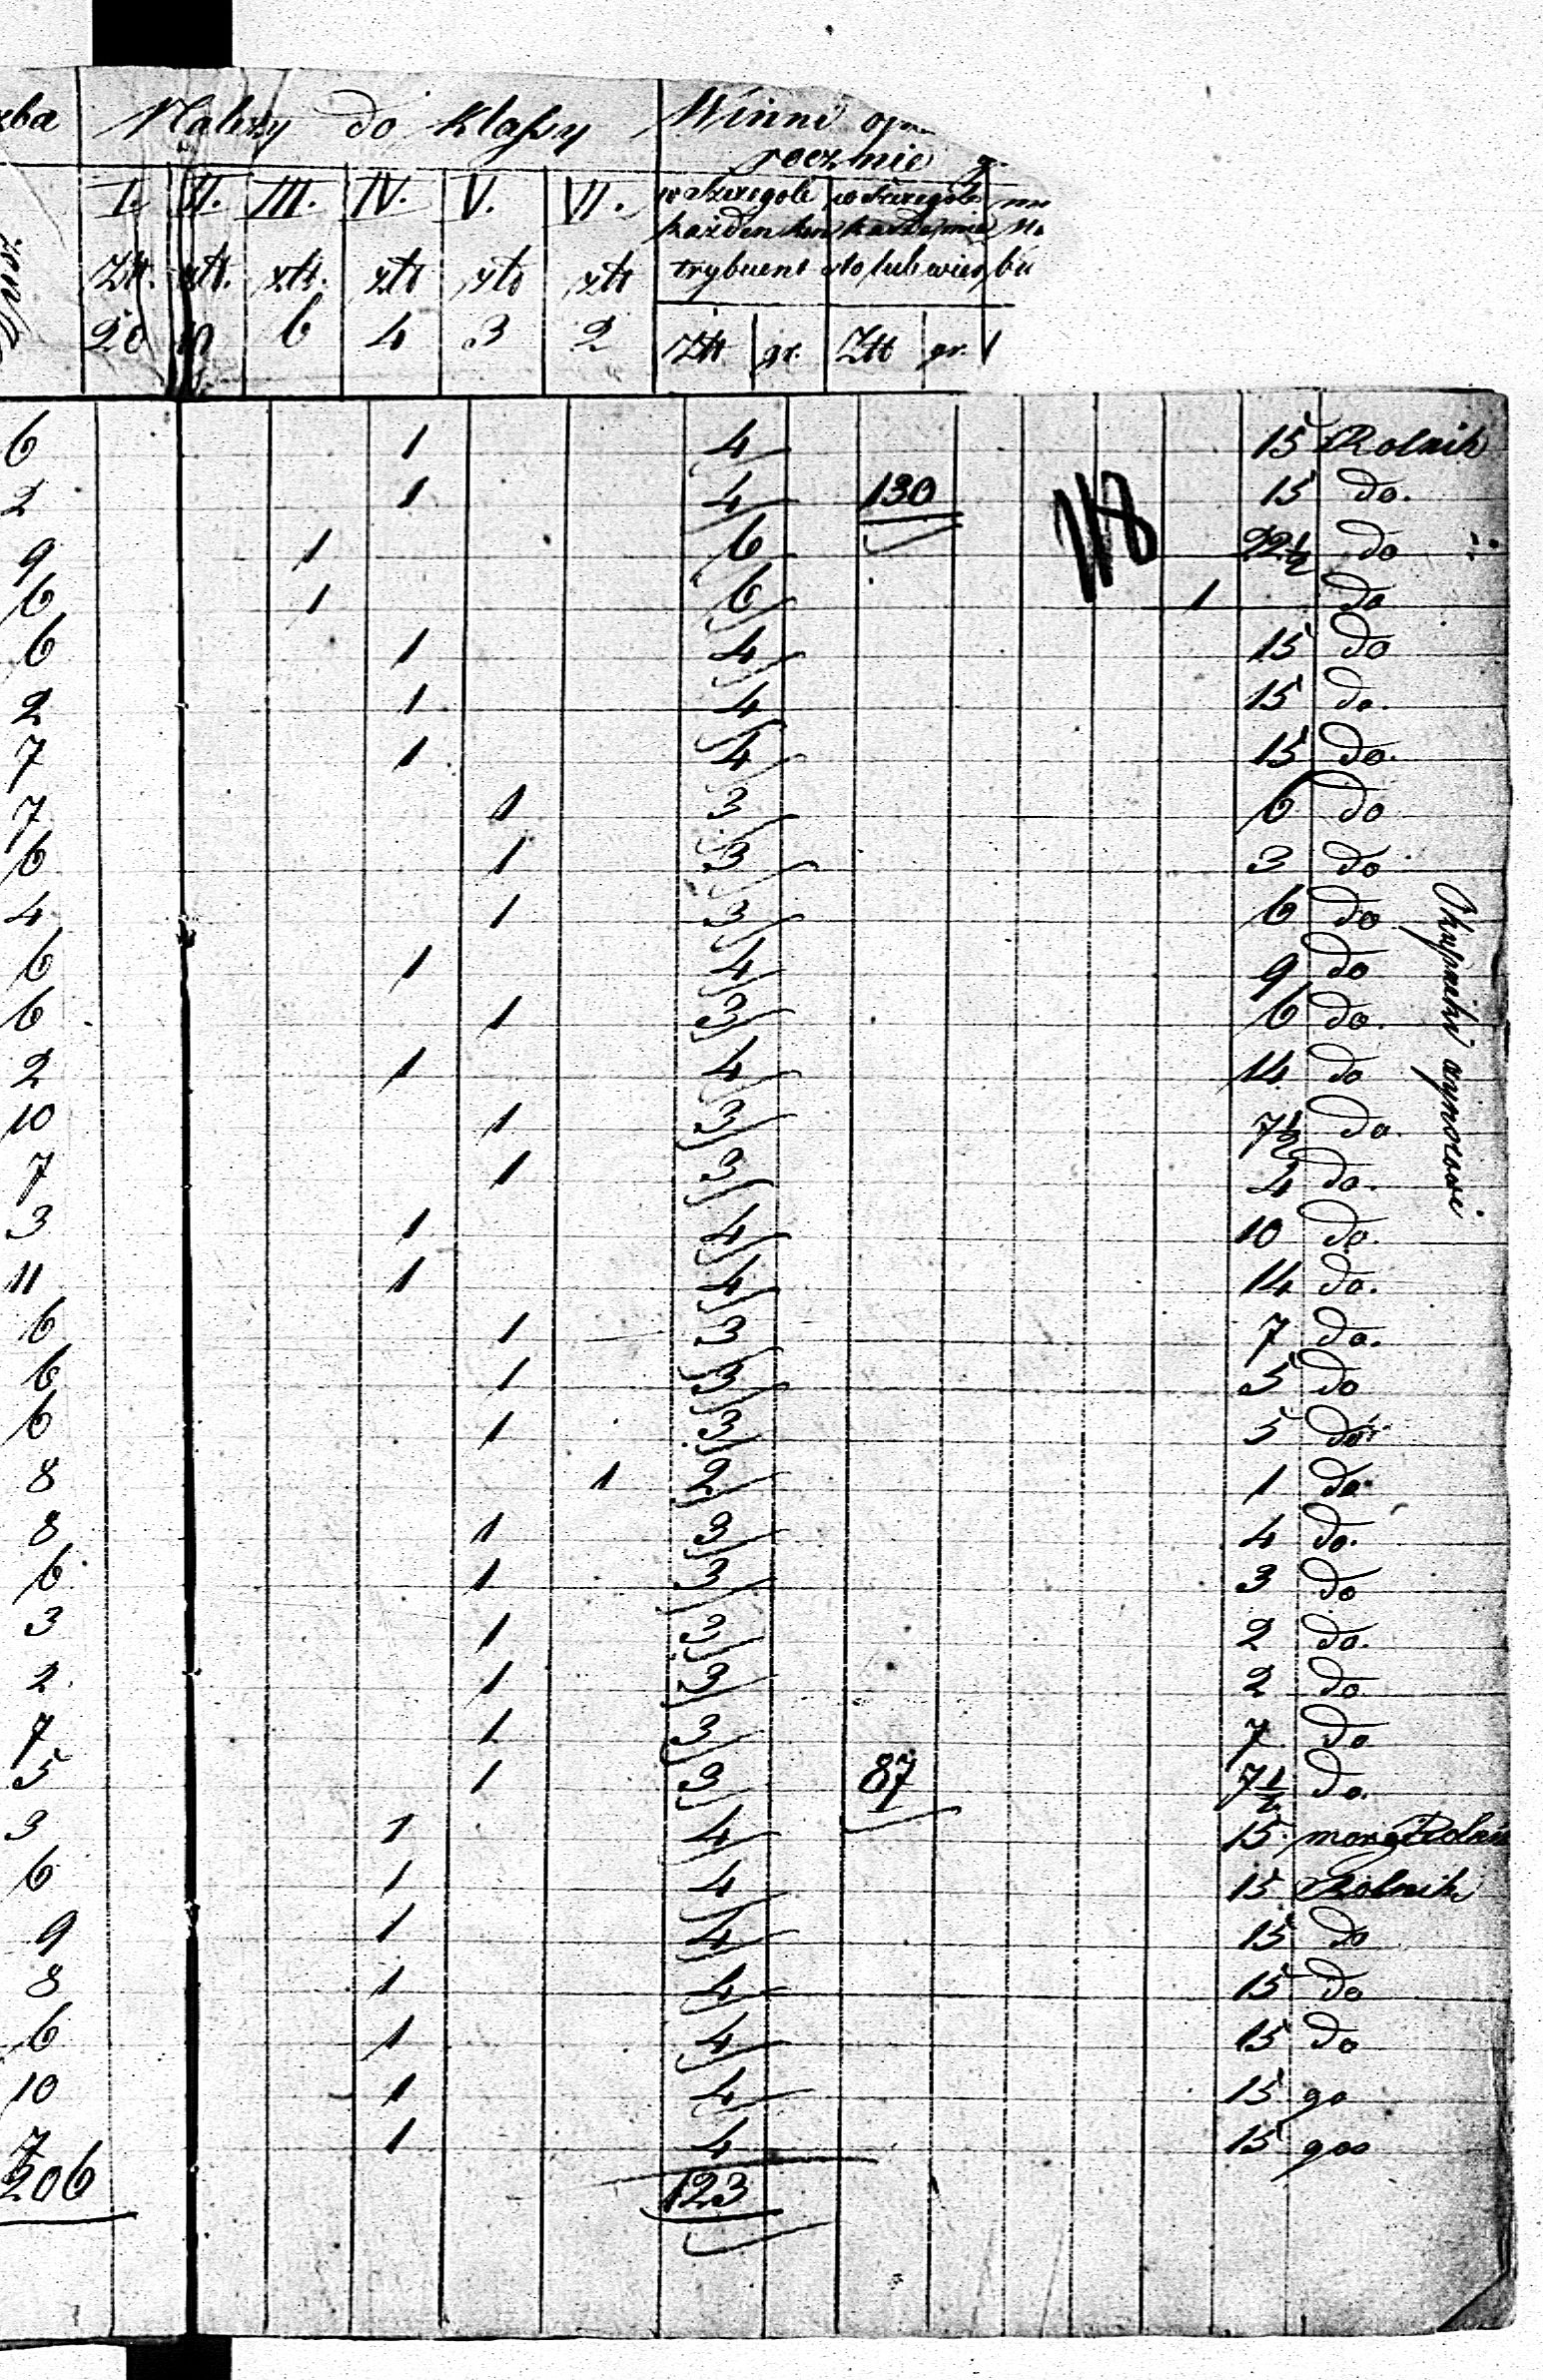 zba Należy do klassy Winni
rocznie
I. II. III. IV. V. VI. w szczególe w szczególe
każden kon
Złt. złt. złt. złt złt złt trybuent sto lub wies bu
20 10 6 4 3 2 Złt gr. Złt gr.
6 1 4 15 Rolnik
2 1 4 130 118 15 do.
9 1 6 22½ do
6 1 6 1 do
6 1 4 15 do
2 1 4 15 do.
7 1 4 15 do.
7 1 3 6 do
6 1 3 3 do
4 1 3 6 do
6 1 4 9 do
6 1 3 6 do.
2 1 4 14 do
10 1 3 7½ do.
7 1 3 4 do.
3 1 4 10 do.
11 1 4 14 do.
6 1 3 7 do.
6 1 3 5 do
6 1 3 5 do
8 1 2 1 do
8 1 3 4 do.
6 1 3 3 do
3 1 3 2 do.
2 1 3 2 do
7 1 3 7 do
5 1 3 87 7½ do.
3 1 4 15 morg
6 1 4 15 Rolnik
9 1 4 15 do
8 1 4 15 do
6 1 4 15 do
10 1 4 15 go
7 1 4 15 goo
206 123